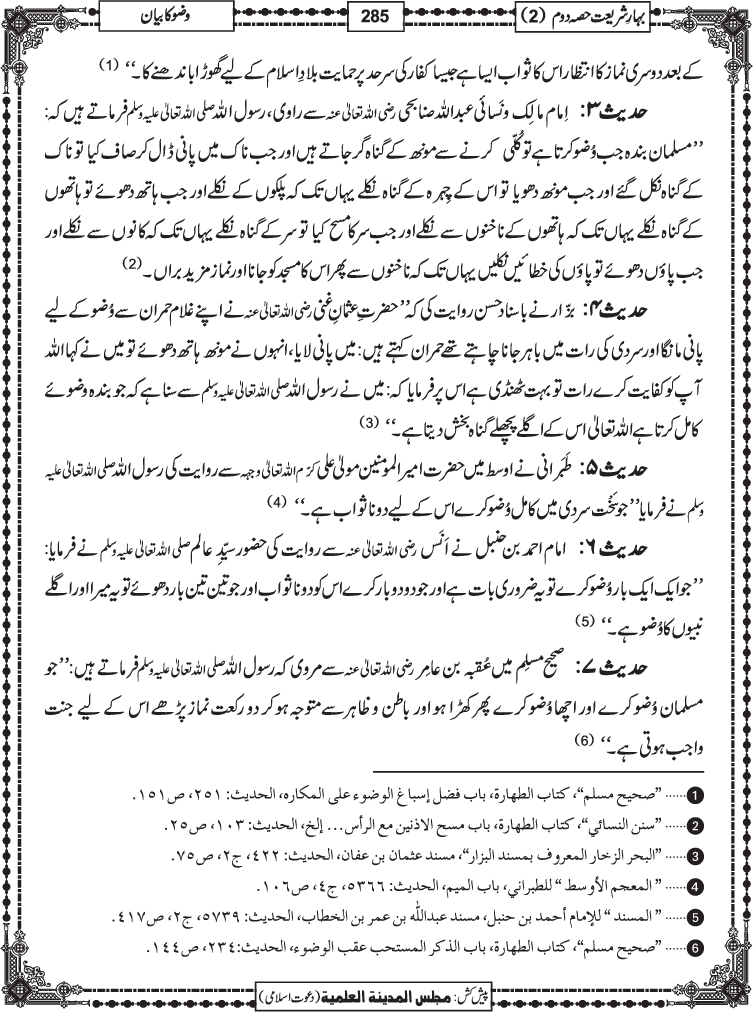 بہارِ شریعت حصہ دوم (2)
285
وضو کا بیان
کے بعد دوسری نماز کا انتظار اس کا ثواب ایسا ہے جیسا کفار کی سرحد پر حمایت بلادِ اسلام کے لیے گھوڑا باندھنے کا۔‘‘ (1)
حدیث ۳: اِمام مالِک و نَسائی عبداللہ صنابحی رضی اللہ تعالیٰ عنہ سے راوی، رسول اللہ صلی اللہ تعالیٰ علیہ وسلم فرماتے ہیں کہ:
’’مسلمان بندہ جب وُضو کرتا ہے تو کُلّی کرنے سے مونھ کے گناہ گر جاتے ہیں اور جب ناک میں پانی ڈال کر صاف کیا تو ناک
کے گناہ نکل گئے اور جب مونھ دھویا تو اس کے چہرہ کے گناہ نکلے یہاں تک کہ پلکوں کے نکلے اور جب ہاتھ دھوئے تو ہاتھوں
کے گناہ نکلے یہاں تک کہ ہاتھوں کے ناخنوں سے نکلے اور جب سر کا مسح کیا تو سر کے گناہ نکلے یہاں تک کہ کانوں سے نکلے اور
جب پاؤں دھوئے تو پاؤں کی خطائیں نکلیں یہاں تک کہ ناخنوں سے پھر اس کا مسجد کو جانا اور نماز مزید براں۔ (2)
حدیث ۴: بزّار نے باسناد حسن روایت کی کہ ’’حضرتِ عثمانِ غنی رضی اللہ تعالیٰ عنہ نے اپنے غلام حمران سے وُضو کے لیے
پانی مانگا اور سردی کی رات میں باہر جانا چاہتے تھے حمران کہتے ہیں: میں پانی لایا، انہوں نے مونھ ہاتھ دھوئے تو میں نے کہا اللہ
آپ کو کفایت کرے رات تو بہت ٹھنڈی ہے اس پر فرمایا کہ: میں نے رسول اللہ صلی اللہ تعالیٰ علیہ وسلم سے سنا ہے کہ جو بندہ وضوئے
کامل کرتا ہے اللہ تعالیٰ اس کے اگلے پچھلے گناہ بخش دیتا ہے۔‘‘ (3)
حدیث ۵: طَبَرانی نے اوسط میں حضرت امیر المؤمنین مولیٰ علی کرّم اللہ تعالیٰ وجہہ سے روایت کی رسول اللہ صلی اللہ تعالیٰ علیہ
وسلم نے فرمایا ’’جو سخت سردی میں کامل وُضو کرے اس کے لیے دونا ثواب ہے۔‘‘ (4)
حدیث ۶: امام احمد بن حنبل نے اَنَس رضی اللہ تعالیٰ عنہ سے روایت کی حضور سیّدِ عالم صلی اللہ تعالیٰ علیہ وسلم نے فرمایا:
’’جو ایک ایک بار وُضو کرے تو یہ ضروری بات ہے اور جو دو دو بار کرے اس کو دونا ثواب اور جو تین تین بار دھوئے تو یہ میرا اور اگلے
نبیوں کا وُضو ہے۔‘‘ (5)
حدیث ۷: صحیح مسلِم میں عُقبہ بن عامِر رضی اللہ تعالیٰ عنہ سے مروی کہ رسول اللہ صلی اللہ تعالیٰ علیہ وسلم فرماتے ہیں: ’’جو
مسلمان وُضو کرے اور اچھا وُضو کرے پھر کھڑا ہو اور باطن و ظاہر سے متوجہ ہو کر دو رکعت نماز پڑھے اس کے لیے جنت
واجب ہوتی ہے۔‘‘ (6)
1 ...... ”صحیح مسلم“، کتاب الطھارۃ، باب فضل إسباغ الوضوء علی المکارہ، الحدیث: ٢٥١، ص١٥١.
2 ...... ”سنن النسائي“، کتاب الطھارۃ، باب مسح الاذنین مع الرأس... إلخ، الحدیث: ١٠٣، ص٢٥.
3 ...... ”البحر الزخار المعروف بمسند البزار“، مسند عثمان بن عفان، الحدیث: ٤٢٢، ج٢، ص٧٥.
4 ...... ” المعجم الأوسط “ للطبراني، باب المیم، الحدیث: ٥٣٦٦، ج٤، ص١٠٦.
5 ...... ” المسند “ للإمام أحمد بن حنبل، مسند عبداللّٰہ بن عمر بن الخطاب، الحدیث: ٥٧٣٩، ج٢، ص٤١٧.
6 ...... ”صحیح مسلم“، کتاب الطھارۃ، باب الذکر المستحب عقب الوضوء، الحدیث: ٢٣٤، ص١٤٤.
پیش کش: مجلس المدینة العلمیة (دعوتِ اسلامی)